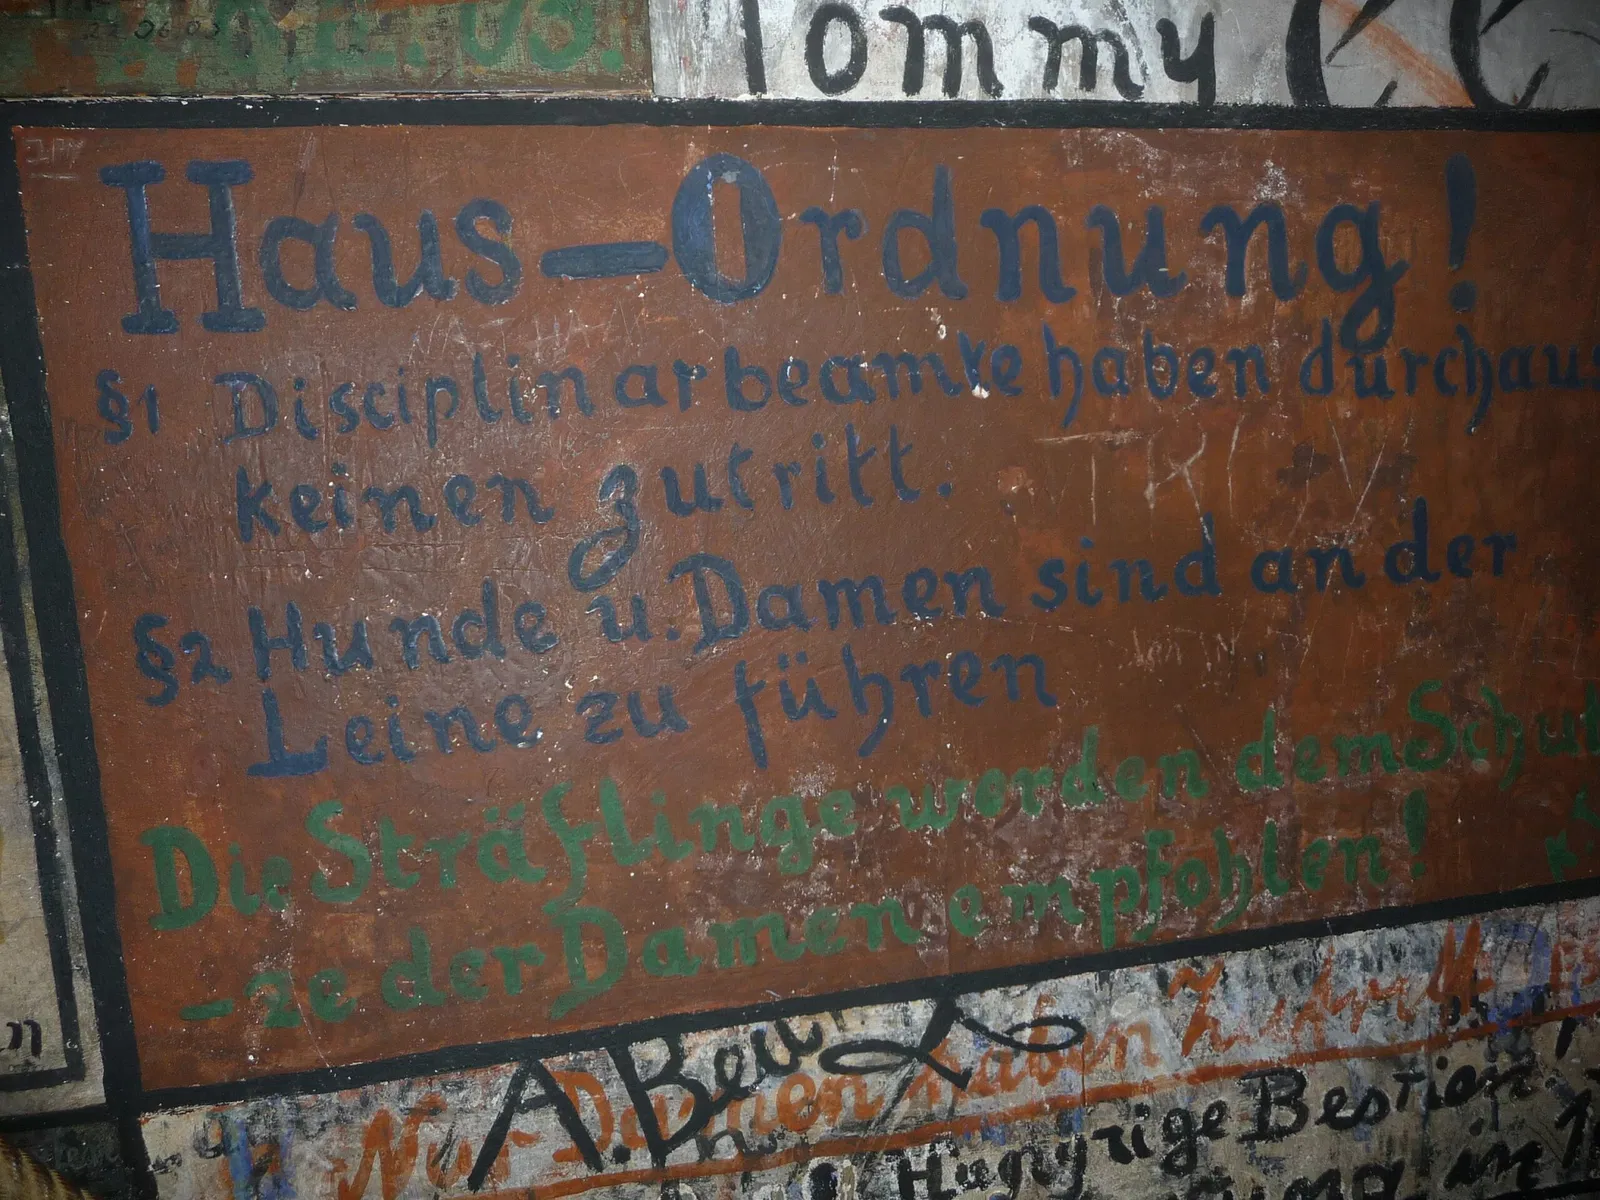 22 06 03
.03.
Tommy
JAY
Haus-Ordnung!
§1 Disciplinarbeamte haben durchaus
keinen zutritt.
§2 Hunde u. Damen sind an der
Leine zu führen
Die Sträflinge werden dem Schut
-ze der Damen empfohlen!
A. Beck
Nur Damen haben Zutritt
Hungrige Bestien
in